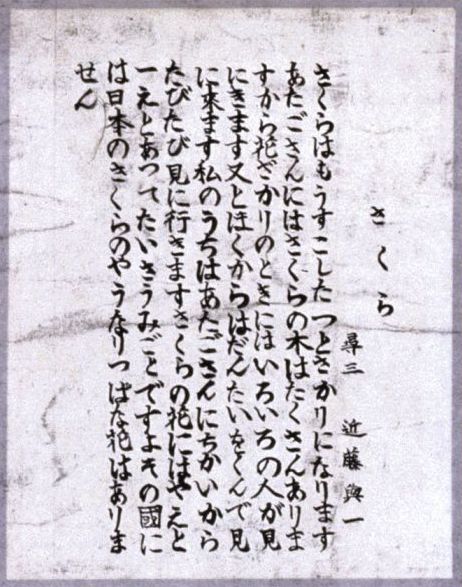 さくら
尋三 近藤與一
さくらはもうすこしたつとさかりになります
あたごさんにはさくらの木はたくさんありま
すから花ざかりのときにはいろいろの人が見
にきます又とほくからはだんたいをくんで見
に來ます私のうちはあたごさんにちかいから
たびたび見に行きますさくらの花にはやえと
一えとあつてたいさうみごとですよその國に
は日本のさくらのやうなりつぱな花はありま
せん